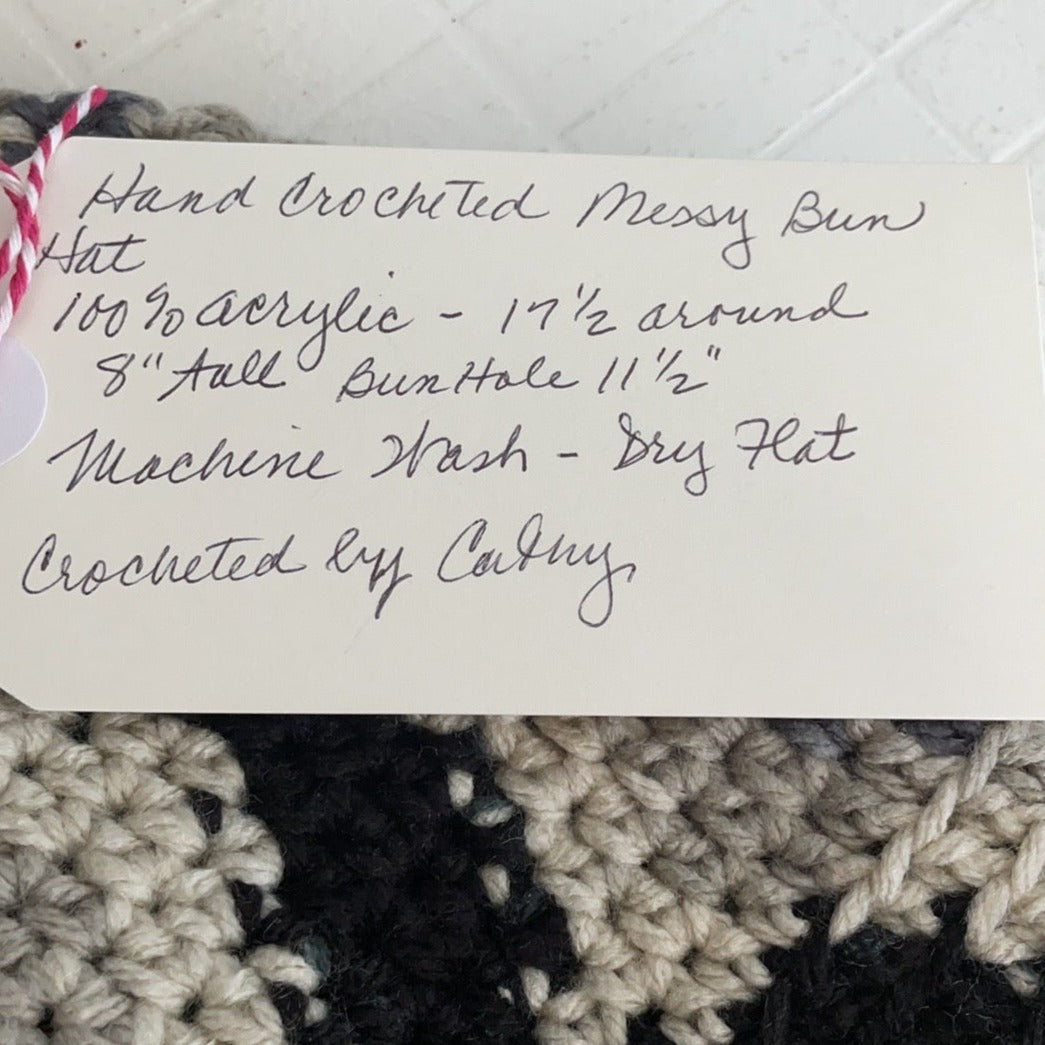 Hand Crocheted Messy Bun
Hat
100% acrylic - 17 1/2 around
8" tall Bun Hole 11 1/2"
Machine Wash - Dry Flat
Crocheted by Cathy